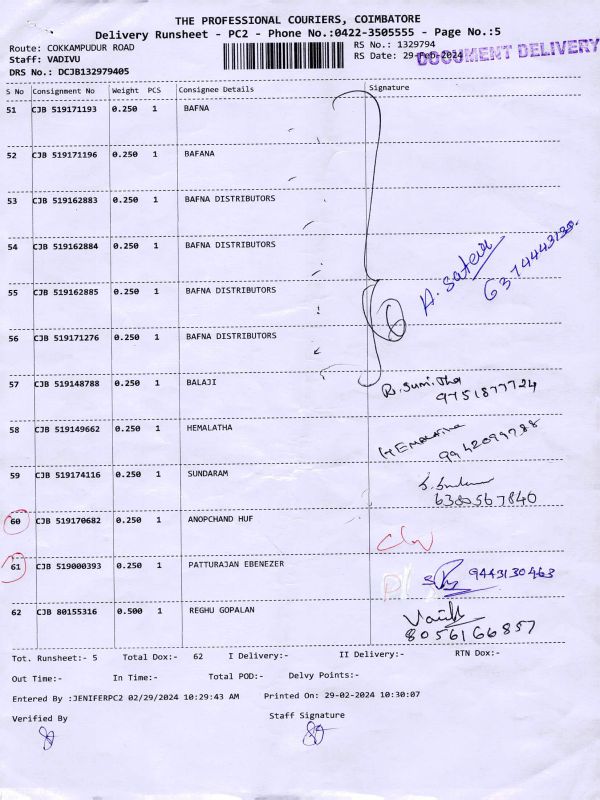 THE PROFESSIONAL COURIERS, COIMBATORE
Delivery Runsheet - PC2 - Phone No.:0422-3505555 - Page No.:5
Route: COKKAMPUDUR ROAD
RS No.: 1329794
Staff: VADIVU
RS Date: 29-Feb-2024
DOCUMENT DELIVERY
DRS No.: DCJB132979405
S No Consignment No Weight PCS Consignee Details Signature
51 CJB 519171193 0.250 1 BAFNA
52 CJB 519171196 0.250 1 BAFANA
53 CJB 519162883 0.250 1 BAFNA DISTRIBUTORS
54 CJB 519162884 0.250 1 BAFNA DISTRIBUTORS
6374443130
55 CJB 519162885 0.250 1 BAFNA DISTRIBUTORS
56 CJB 519171276 0.250 1 BAFNA DISTRIBUTORS
57 CJB 519148788 0.250 1 BALAJI
9751877724
58 CJB 519149662 0.250 1 HEMALATHA HEMALATHA
9942099788
59 CJB 519174116 0.250 1 SUNDARAM
6380567840
60 CJB 519170682 0.250 1 ANOPCHAND HUF
61 CJB 519000393 0.250 1 PATTURAJAN EBENEZER
9443130463
62 CJB 80155316 0.500 1 REGHU GOPALAN
8056166857
Tot. Runsheet:- 5 Total Dox:- 62 I Delivery:- II Delivery:- RTN Dox:-
Out Time:- In Time:- Total POD:- Delvy Points:-
Entered By :JENIFERPC2 02/29/2024 10:29:43 AM Printed On: 29-02-2024 10:30:07
Verified By Staff Signature